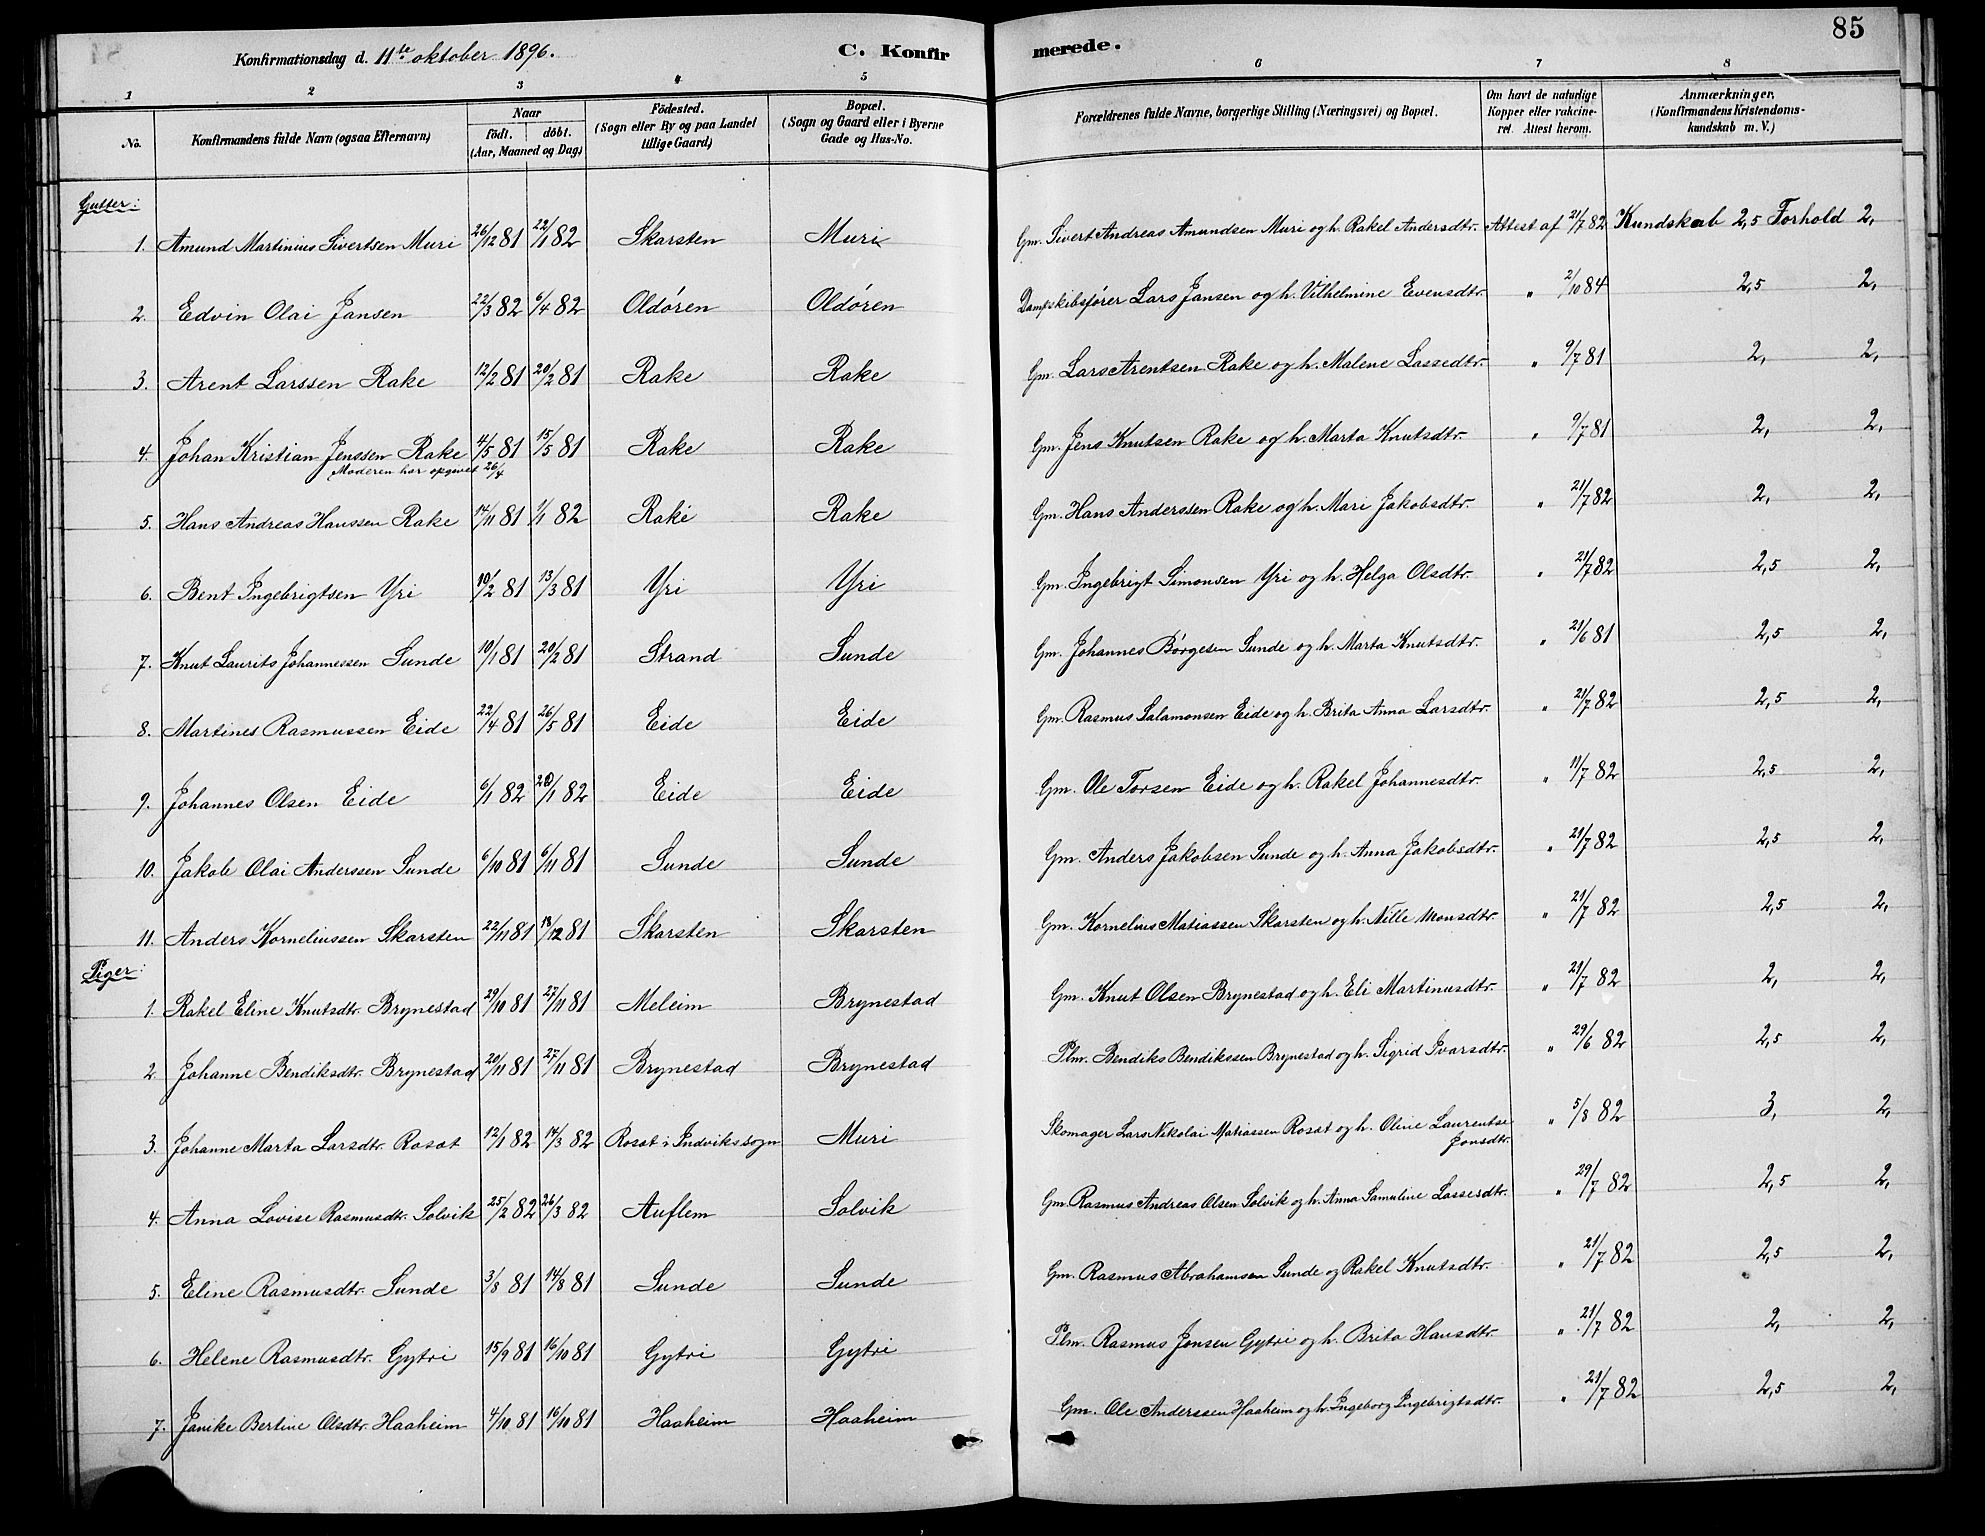 85
Konfirmationsdag d. 11te oktober 1896. C. Konfirmerede.
1 2 3 4 5 6 7 8
No. Konfirmandens fulde Navn (ogsaa Efternavn) Naar födt. döbt. (Aar, Maaned og Dag) Födested. (Sogn eller By og paa Landet tillige Gaard) Bopæl. (Sogn og Gaard eller i Byerne Gade og Hus-No. Forældrenes fulde Navne, borgerlige Stilling (Næringsvei) og Bopæl. Om havt de naturlige Kopper eller vakcineret. Attest herom. Anmærkninger, (Konfirmandens Kristendomskundskab m. V.)
Gutter:
1. Amund Martinius Sivertsen Muri 26/12 81 22/1 82 Skarsten Muri Gm. Sivert Andreas Amundsen Muri og h. Rakel Andersdtr. Attest af 21/7 82 Kundskab 2,5 Forhold 2,
2. Edvin Olai Jansen 22/3 82 6/4 82 Oldören Oldören Dampskibsfører Lars Jansen og h. Vilhelmine Evensdtr. " 2/10 84 2,5 2,
3. Arent Larssen Rake 12/2 81 20/2 81 Rake Rake Gm. Lars Arentsen Rake og h. Malene Lassedtr. " 9/7 81 2, 2,
4. Johan Kristian Jenssen Rake 4/5 81 15/5 81 Rake Rake Gm. Jens Knutsen Rake og h. Marta Knutsdtr. " 9/7 81 2, 2,
Moderen har opgivet 26/4
5. Hans Andreas Hanssen Rake 14/11 81 1/1 82 Rake Rake Gm. Hans Anderssen Rake og h. Mari Jakobsdtr. " 21/7 82 2, 2,
6. Bent Ingebrigtsen Yri 10/2 81 13/3 81 Yri Yri Gm. Ingebrigt Simonsen Yri og h. Helga Olsdtr. " 21/7 82 2,5 2,
7. Knut Laurits Johannessen Sunde 10/1 81 20/2 81 Strand Sunde Gm. Johannes Börgesen Sunde og h. Marta Knutsdtr. " 21/6 81 2,5 2,
8. Martines Rasmussen Eide 22/4 81 26/5 81 Eide Eide Gm. Rasmus Salamonsen Eide og h. Brita Anna Larsdtr. " 21/7 82 2,5 2,
9. Johannes Olsen Eide 6/1 82 20/1 82 Eide Eide Gm. Ole Torsen Eide og h. Rakel Johannesdtr. " 11/7 82 2,5 2,
10. Jakob Olai Anderssen Sunde 6/10 81 6/11 81 Sunde Sunde Gm. Anders Jakobsen Sunde og h. Anna Jakobsdtr. " 21/7 82 2,5 2,
11. Anders Korneliussen Skarsten 22/11 81 18/12 81 Skarsten Skarsten Gm. Kornelius Matiassen Skarsten og h. Nille Monsdtr. " 21/7 82 2,5 2,
Piger:
1. Rakel Eline Knutsdtr. Brynestad 29/10 81 27/11 81 Meleim Brynestad Gm. Knut Olsen Brynestad og h. Eli Martinusdtr. " 21/7 82 2, 2,
2. Johanne Bendiksdtr. Brynestad 20/11 81 27/11 81 Brynestad Brynestad Plm. Bendiks Bendikssen Brynestad og h. Sigrid Ivarsdtr. " 29/6 82 2,5 2,
3. Johanne Marta Larsdtr. Rosæt 12/1 82 14/3 82 Rosæt i Indvikssogn Muri Skomager Lars Nikolai Matiassen Rosæt og h. Oline Laurentse Jonsdtr. " 5/8 82 3, 2,
4. Anna Lovise Rasmusdtr. Solvik 25/2 82 26/3 82 Auflem Solvik Gm. Rasmus Andreas Olsen Solvik og h. Anna Samuline Lassesdtr. " 29/7 82 2,5 2,
5. Eline Rasmusdtr. Sunde 3/8 81 14/8 81 Sunde Sunde Gm. Rasmus Abrahamsen Sunde og Rakel Knutsdtr. " 21/7 82 2,5 2,
6. Helene Rasmusdtr. Gytri 15/9 81 16/10 81 Gytri Gytri Plm. Rasmus Jonsen Gytri og h. Brita Hansdtr. " 21/7 82 2, 2,
7. Janike Bertine Olsdtr. Haaheim 4/10 81 16/10 81 Haaheim Haaheim Gm. Ole Anderssen Haaheim og h. Ingeborg Ingebrigtsdtr. " 21/7 82 2,5 2,